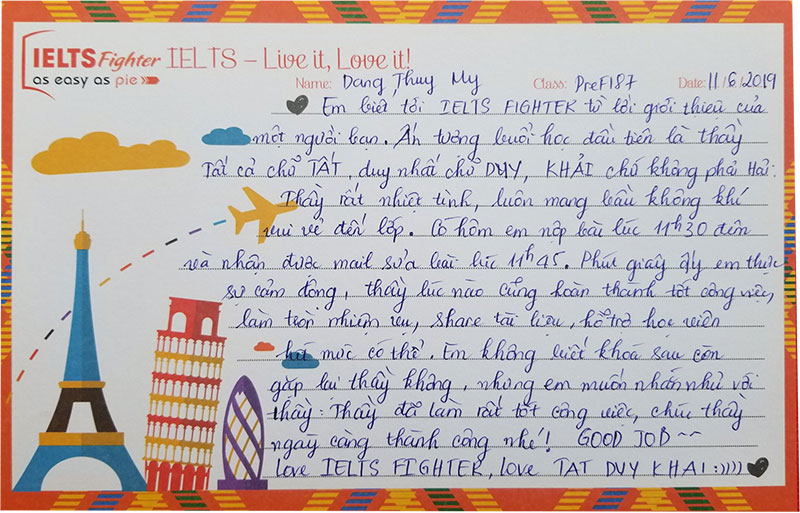 IELTS Fighter IELTS – Live it, Love it!
as easy as pie
Name: Dang Thuy My Class: PreF187 Date: 11/6/2019
Em biết tới IELTS FIGHTER từ lời giới thiệu của
một người bạn. Ấn tượng buổi học đầu tiên là thầy
Tất cả chữ TẤT, duy nhất chữ DUY, KHẢI chứ không phải Hải.
Thầy rất nhiệt tình, luôn mang bầu không khí
vui vẻ đến lớp. Có hôm em nộp bài lúc 11h30 đêm
và nhận được mail sửa bài lúc 11h45. Phút giây ấy em thực
sự cảm động, thầy lúc nào cũng hoàn thành tốt công việc,
làm tròn nhiệm vụ, share tài liệu, hỗ trợ học viên
hết mức có thể. Em không biết khoá sau còn
gặp lại thầy không, nhưng em muốn nhắn nhủ với
thầy: Thầy đã làm rất tốt công việc, chúc thầy
ngaỳ càng thành công nhé! GOOD JOB ~~
love IELTS FIGHTER, love TAT DUY KHAI :))))